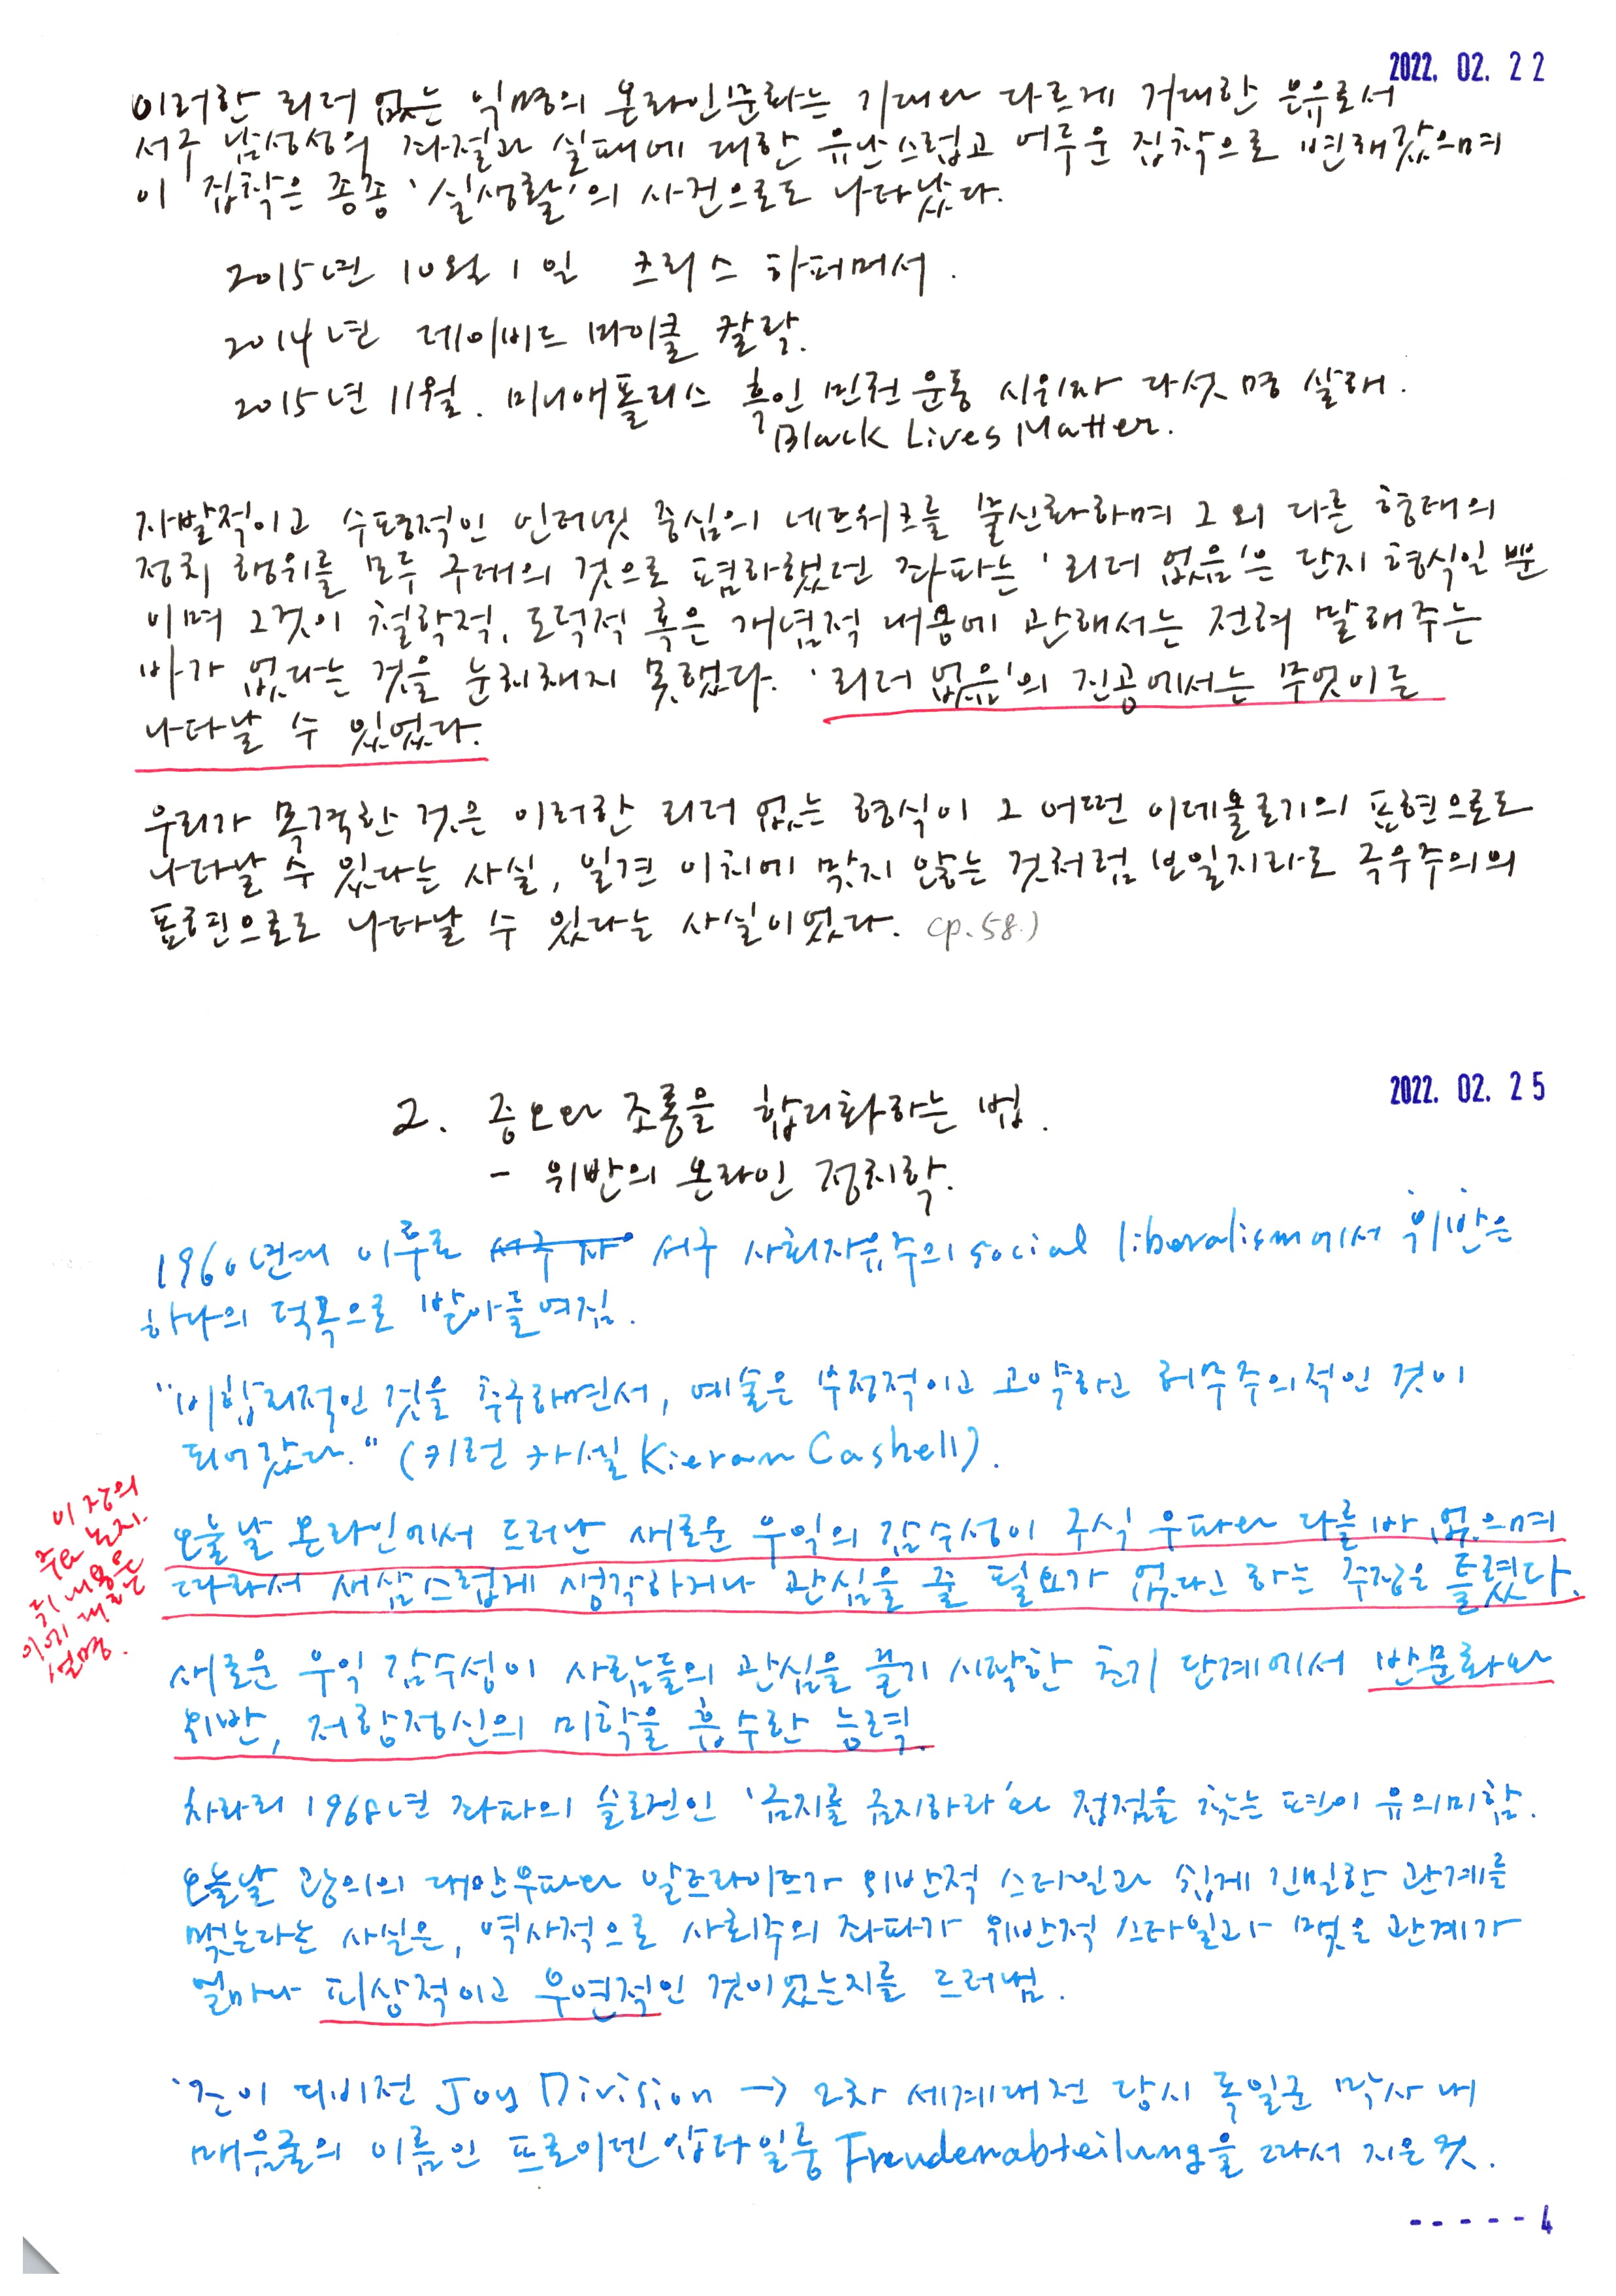 2022. 02. 22
이러한 리더 없는 익명의 온라인문화는 기대와 다르게 거대한 은유로서
서구 남성성의 좌절과 실패에 대한 유난스럽고 어두운 집착으로 변해갔으며
이 집착은 종종 '실생활'의 사건으로도 나타났다.
2015년 10월 1일 크리스 하퍼머서.
2014년 데이비드 마이클 칼락.
2015년 11월. 미니애폴리스 흑인 민권 운동 시위자 다섯 명 살해.
Black Lives Matter.
자발적이고 수평적인 인터넷 중심의 네트워크를 물신화하며 그 외 다른 형태의
정치 행위를 모두 구태의 것으로 폄하했던 좌파는 '리더 없음'은 단지 형식일 뿐
이며 그것이 철학적, 도덕적 혹은 개념적 내용에 관해서는 전혀 말해주는
바가 없다는 것을 눈치채지 못했다. '리더 없음'의 진공에서는 무엇이든
나타날 수 있었다.
우리가 목격한 것은 이러한 리더 없는 형식이 그 어떤 이데올로기의 표현으로도
나타날 수 있다는 사실, 일견 이치에 맞지 않는 것처럼 보일지라도 극우주의의
표현으로도 나타날 수 있다는 사실이었다. (p.58.)
2022. 02. 25
2. 증오와 조롱을 합리화하는 법.
- 위반의 온라인 정치학.
1960년대 이후로 서구 자 서구 사회자유주의 social liberalism에서 위반은
하나의 덕목으로 받아들여짐.
"비합리적인 것을 추구하면서, 예술은 부정적이고 고약하고 허무주의적인 것이
되어갔다." (키런 카셸 Kieran Cashell).
이 장의
주요 논지.
뒤 내용은
이에 대한
설명.
오늘날 온라인에서 드러난 새로운 우익의 감수성이 구식 우파와 다를 바 없으며
따라서 새삼스럽게 생각하거나 관심을 줄 필요가 없다고 하는 주장은 틀렸다.
새로운 우익 감수성이 사람들의 관심을 끌기 시작한 초기 단계에서 반문화와
위반, 저항정신의 미학을 흡수한 능력.
차라리 1968년 좌파의 슬로건인 '금지를 금지하라'와 접점을 찾는 편이 유의미함.
오늘날 광의의 대안우파와 알트라이트가 위반적 스타일과 쉽게 긴밀한 관계를
맺는다는 사실은, 역사적으로 사회주의 좌파가 위반적 스타일과 맺은 관계가
얼마나 피상적이고 우연적인 것이었는지를 드러냄.
'조이 디비전 Joy Division → 2차 세계대전 당시 독일군 막사 내
매음굴의 이름인 프로이덴압타일룽 Freudenabteilung을 따라서 지은 것.
- - - - - 4